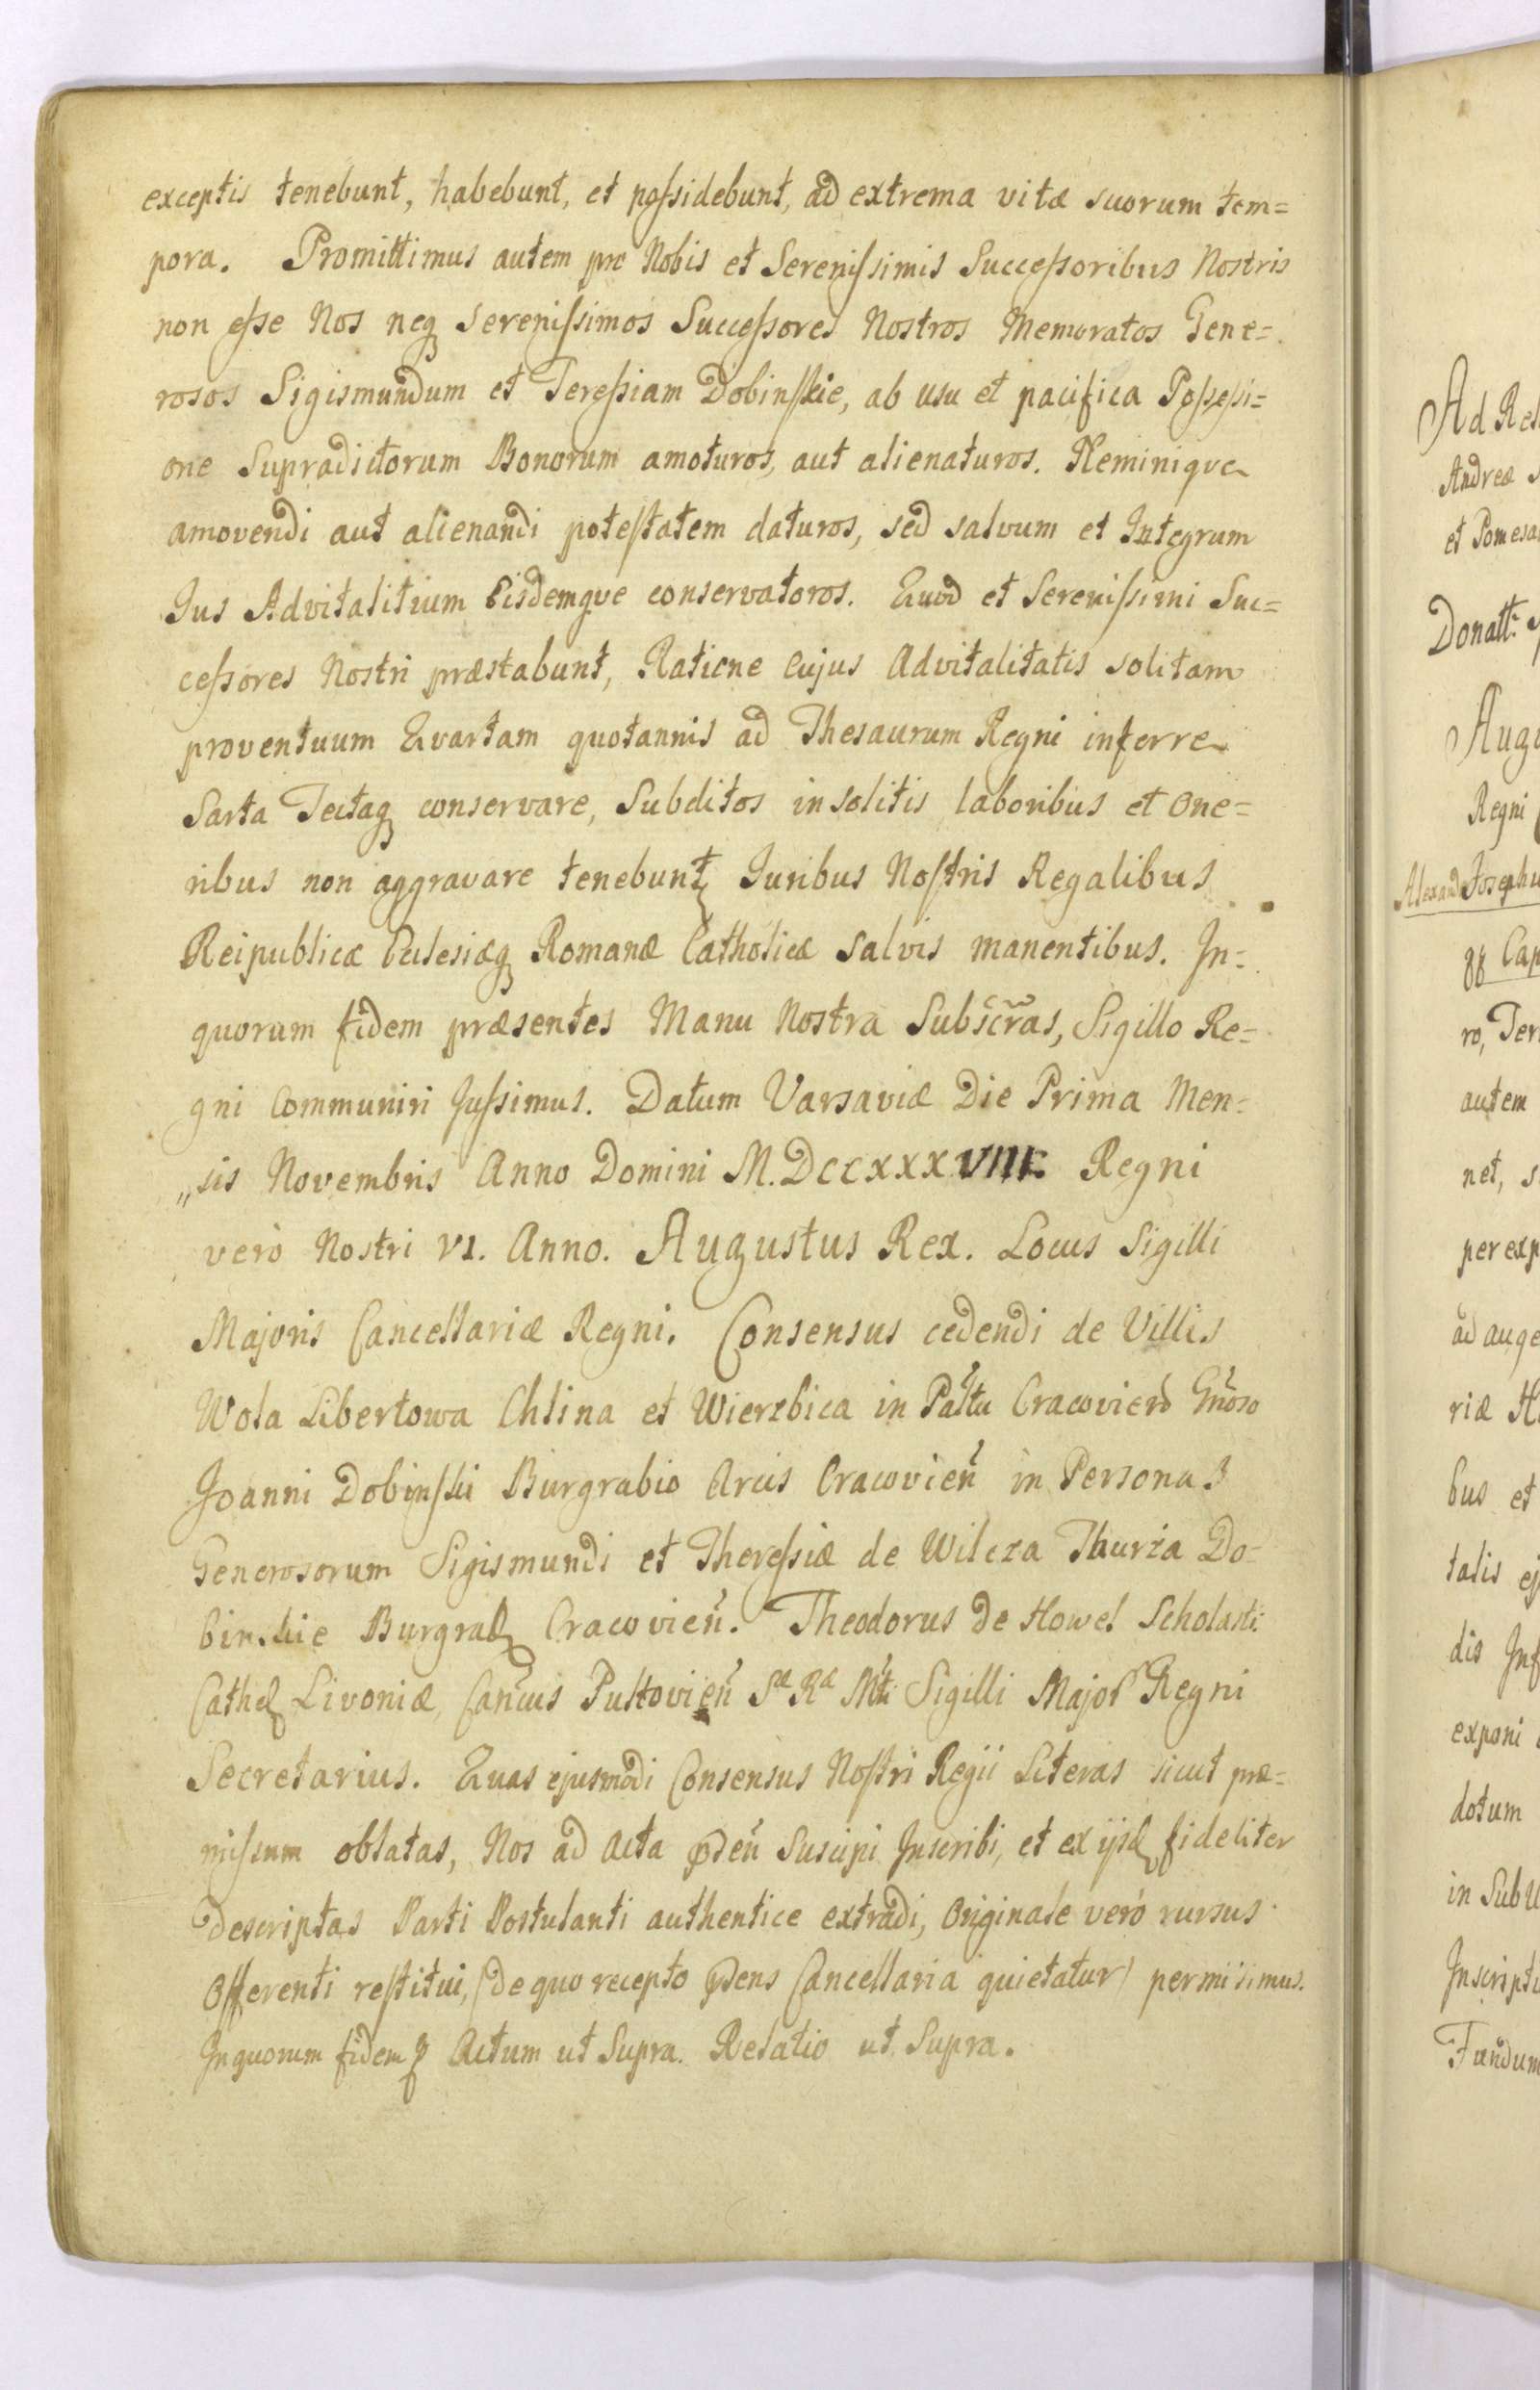 exceptis tenebunt, habebunt, et poſsidebunt, ad extrema vitæ suorum tem=
pora. Promittimus autem pro Nobis et Sereniſsimis Succeſsoribus Nostris
non eſse Nos neqꝫ Sereniſsimos Succeſsores Nostros Memoratos Gene=
rosos Sigismundum et Tereſsiam Dobinſkie, ab usu et pacifica Poſseſsi=
one Supradictorum Bonorum amoturos, aut alienaturos. Neminique
amovendi aut alienandi poteſtatem daturos, sed salvum et Integrum
Jus Advitalitium Eisdemque conservatoros. Quod et Sereniſsimi Suc=
ceſsores Nostri præstabunt, Ratione cujus Advitalitatis solitam
proventuum Quartam quotannis ad Thesaurum Regni inferre
Sarta Tectaqꝫ conservare, Subditos insolitis laboribus et one=
ribus non aggravare tenebuntꝫ Juribus Noſtris Regalibus
Reipublicæ Eclesiæqꝫ Romanæ Catholicæ salvis manentibus. In=
quorum fidem præsentes Manu Nostra Subscr̃as, Sigillo Re=
gni Communiri Juſsimus. Datum Varsaviæ Die Prima Men=
„sis Novembris Anno Domini M.DCCXXXVIII. Regni
verò Nostri VI. Anno. Augustus Rex. Locus Sigilli
Majoris Cancellariæ Regni. Consensus cedendi de Villis
Wola Libertowa Chlina et Wierzbica in Paltu Cracovien̉ Gn̉oso
Joanni Dobinſki Burgrabio Arcis Cracovien̉ in Personas
Generosorum Sigismundi et Thereſsiæ de Wilcza Thurza Do=
binskie Burgrabꝫ Cracovien̉. Theodorus de Howel Scholasti:
Cathedꝫ Livoniæ, Can̉cus Pultovien̉ Sæ Ræ Mtti Sigilli Major Regni
Secretarius. Quas ejusmodi Consensus Noſtri Regii Literas sicut præ=
miſsum oblatas, Nos ad Acta p̃sen̉ Suscipi Inscribi, et ex ijsdꝫ fideliter
descriptas Parti Postulanti authentice extradi, Originale verò rursus
Offerenti reſtitui, (de quo recepto p̃sens Cancellaria quietatur) permisimus.
Inquorum fidemꝫ Actum ut Supra. Relatio ut Supra.
Ad Rel
Andreæ
et Pomesa
Donatt:
Augu
Regni
Alexand Josephu
qq Cap
ro, Ter
autem
net, s
per exp
ad auge
riæ H
bus et
talis ej
dis Inf
exponi
dotum
in Sub
Inscript
Fundum